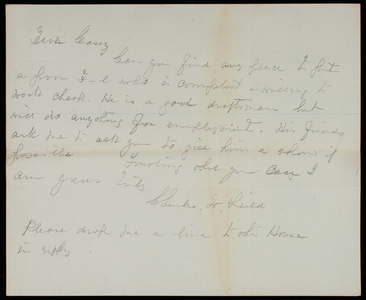 Can you find any place to put
a poor who is competent & willing to
work cheap. He is a good draftsman but
will do anything for employment. His friends
ask me to ask you to give him a show if
possible Trusting that you can I
am yours truly
Charles W.
Please drop me a line to the House
in reply